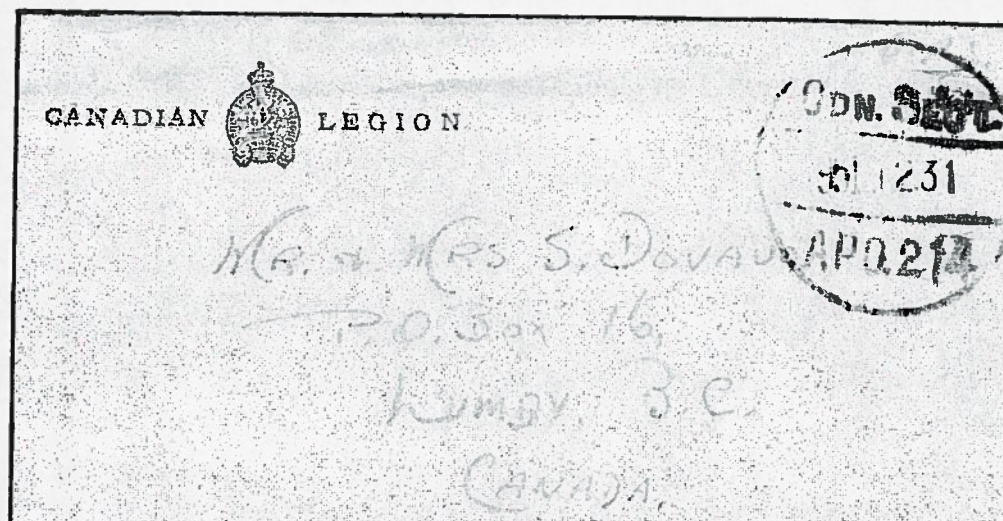 CANADIAN LEGION
CDN. SECT.
1231
A.P.O. 217
Mr. & Mrs S.
P.O. Box 16,
Lumby, B.C.
CANADA,